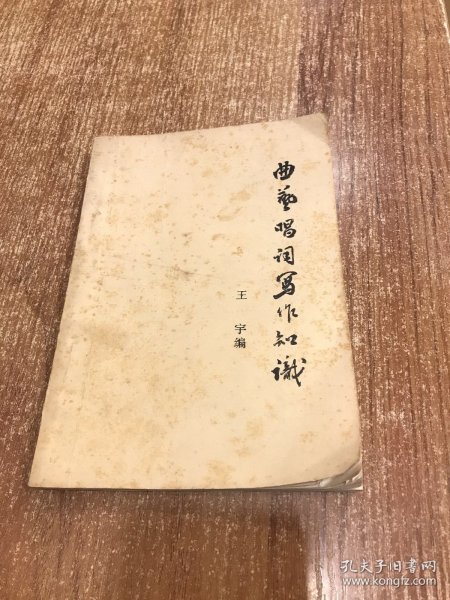 曲藝唱词写作知識
王宇編
孔夫子旧书网
www.kongfz.com